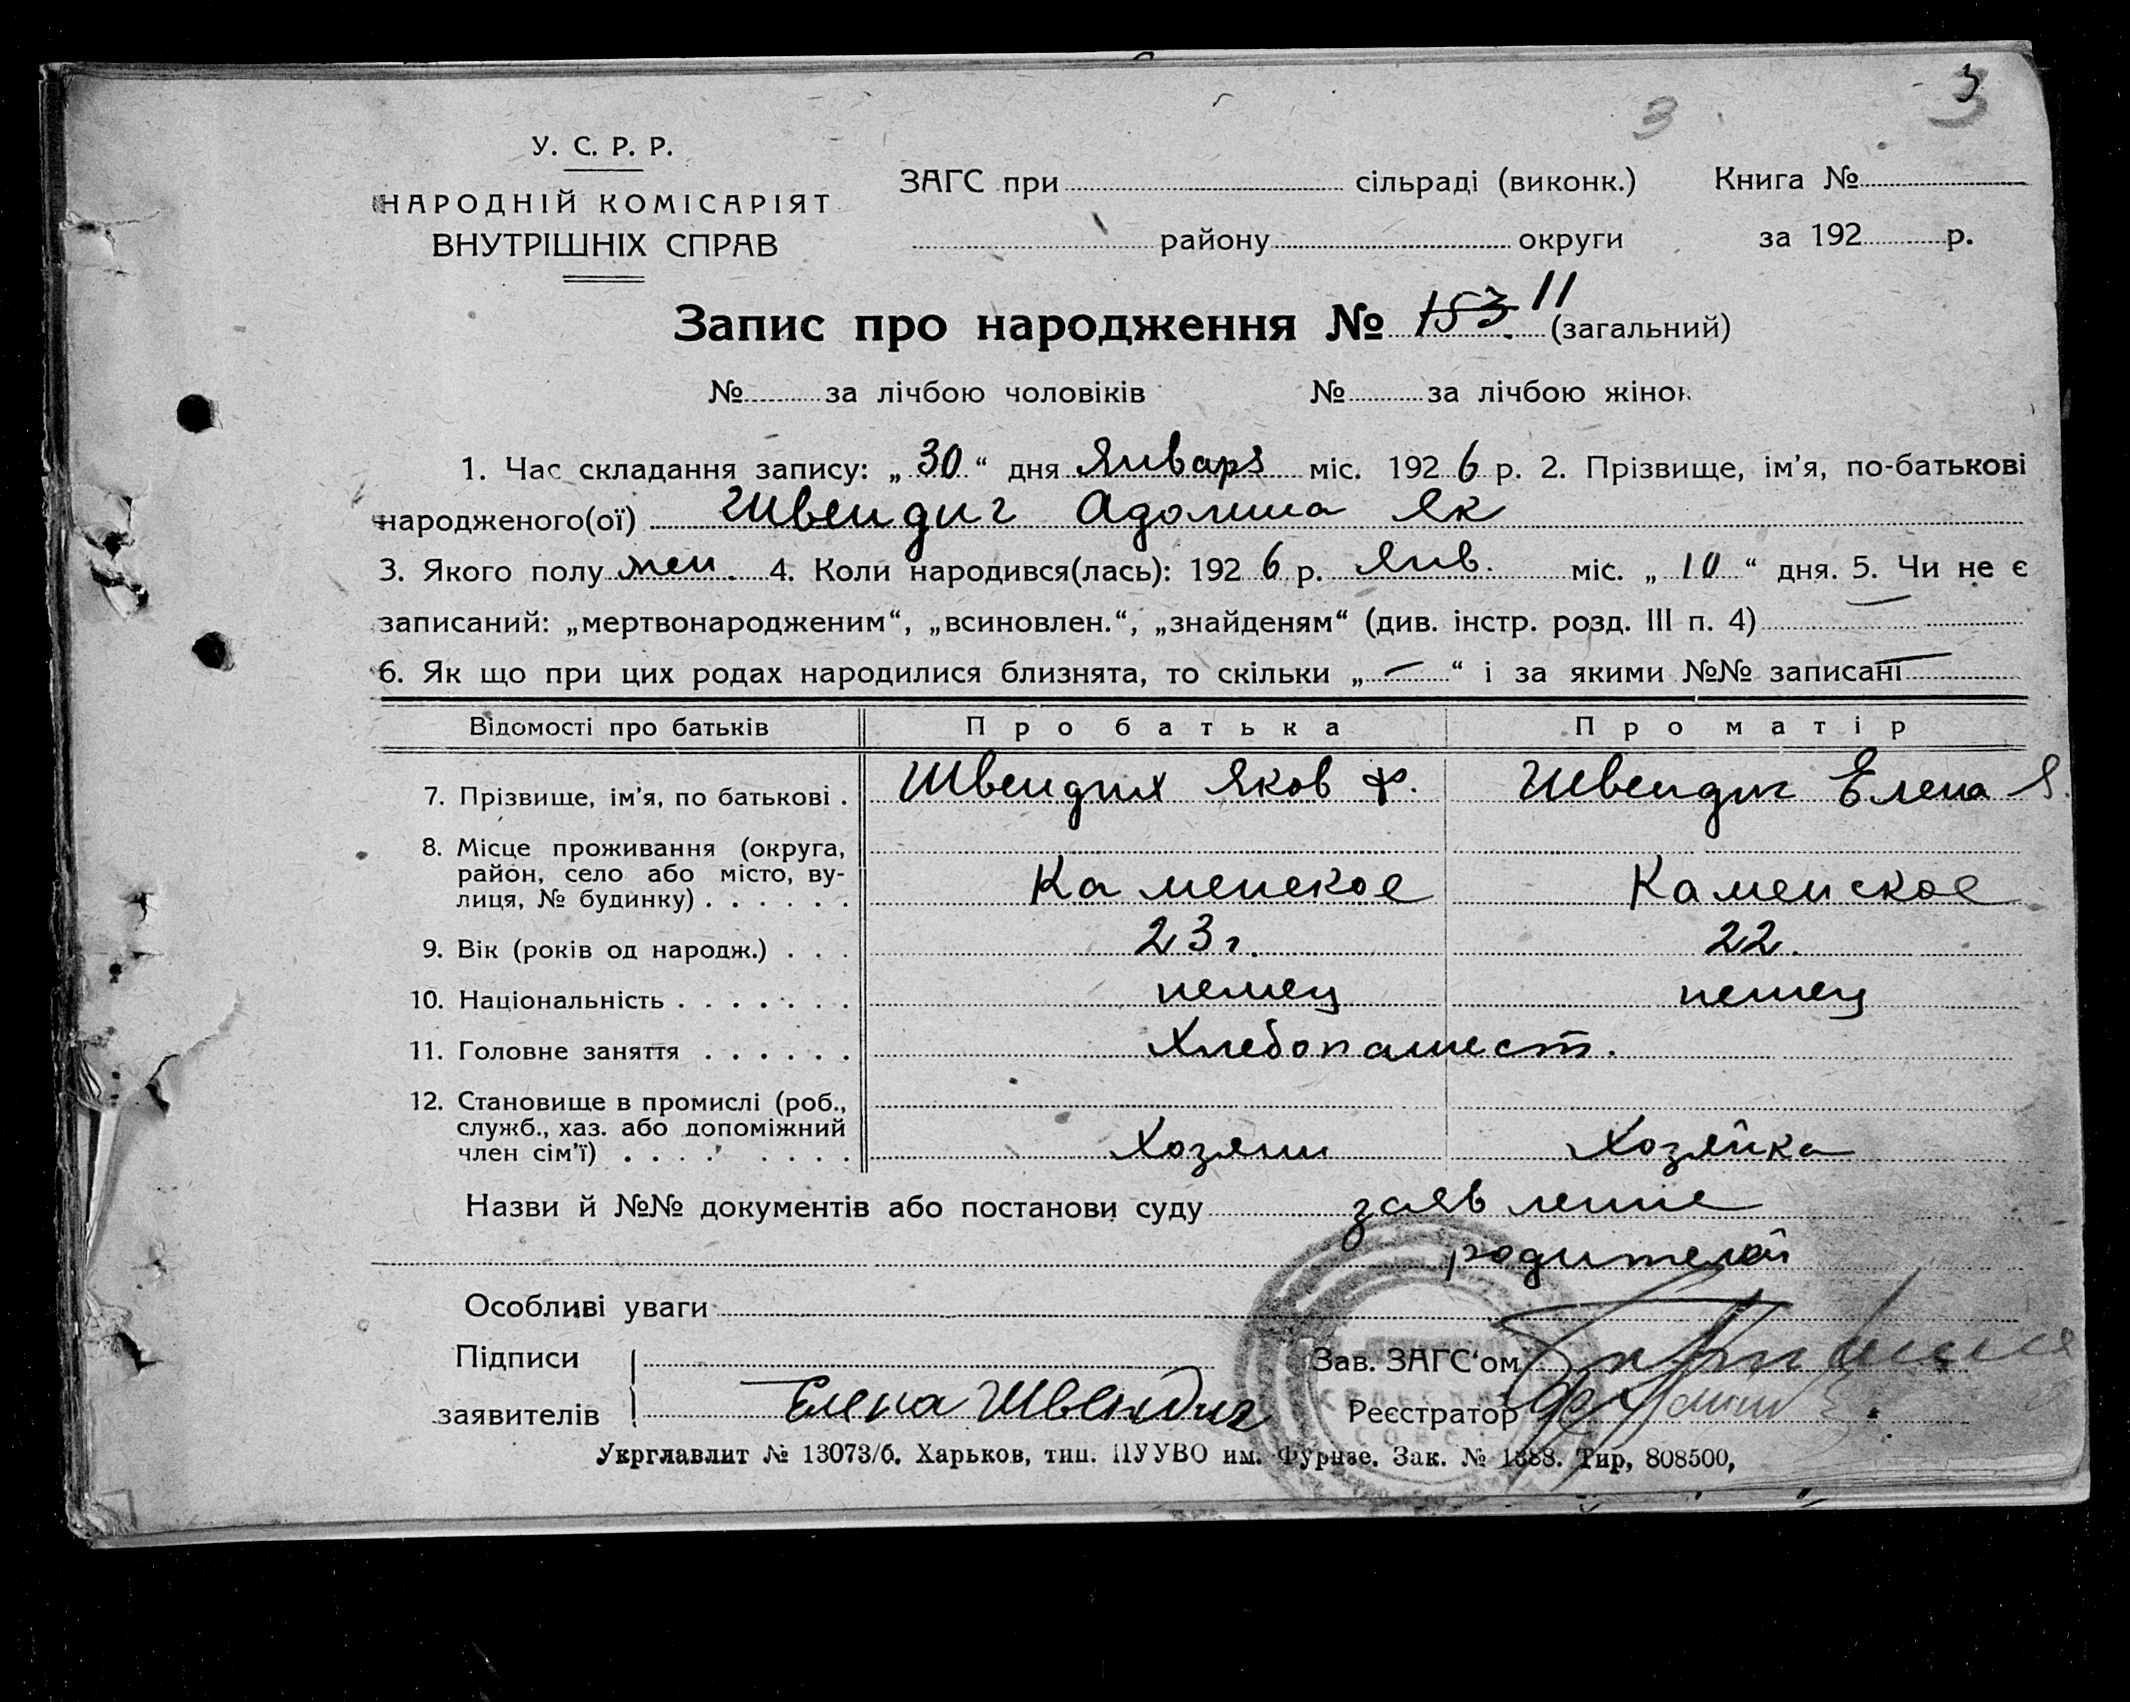 3 3 3
У. С. Р. Р.
НАРОДНІЙ КОМІСАРІЯТ
ВНУТРІШНІХ СПРАВ
ЗАГС при сільраді (виконк.) Книга №
району округи за 192 р.
Запис про народження № 153 11 (загальний)
№ за лічбою чоловіків № за лічбою жінок
1. Час складання запису: „30“ дня Января міс. 1926 р. 2. Прізвище, ім'я, по-батькові
народженого(ої) Швендиг Адолина Як
3. Якого полу жен. 4. Коли народився(лась): 1926 р. Янв. міс. „10“ дня. 5. Чи не є
записаний: „мертвонародженим“, „всиновлен.“, „знайденям“ (див. інстр. розд. III п. 4) —
6. Як що при цих родах народилися близнята, то скільки „—“ і за якими №№ записані —
Відомості про батьків Про батька Про матір
7. Прізвище, ім'я, по батькові . Швендих Яков Ф. Швендиг Елена Я.
8. Місце проживання (округа,
район, село або місто, ву-
лиця, № будинку) . . . . . . Каменское Каменское
9. Вік (років од народж.) . . . 23 г. 22.
10. Національність . . . . . . . немец немец
11. Головне заняття . . . . . . Хлебопашест.
12. Становище в промислі (роб.,
служб., хаз. або допоміжний
член сім'ї) . . . . . . . . Хозяин Хозяйка
Назви й №№ документів або постанови суду заявление
родителей
Особливі уваги
Підписи Зав. ЗАГС'ом
заявителів Елена Швендиг Реєстратор
Укрглавлит № 13073/б. Харьков, тип. ПУУВО им. Фрунзе. Зак. № 1388. Тир, 808500,